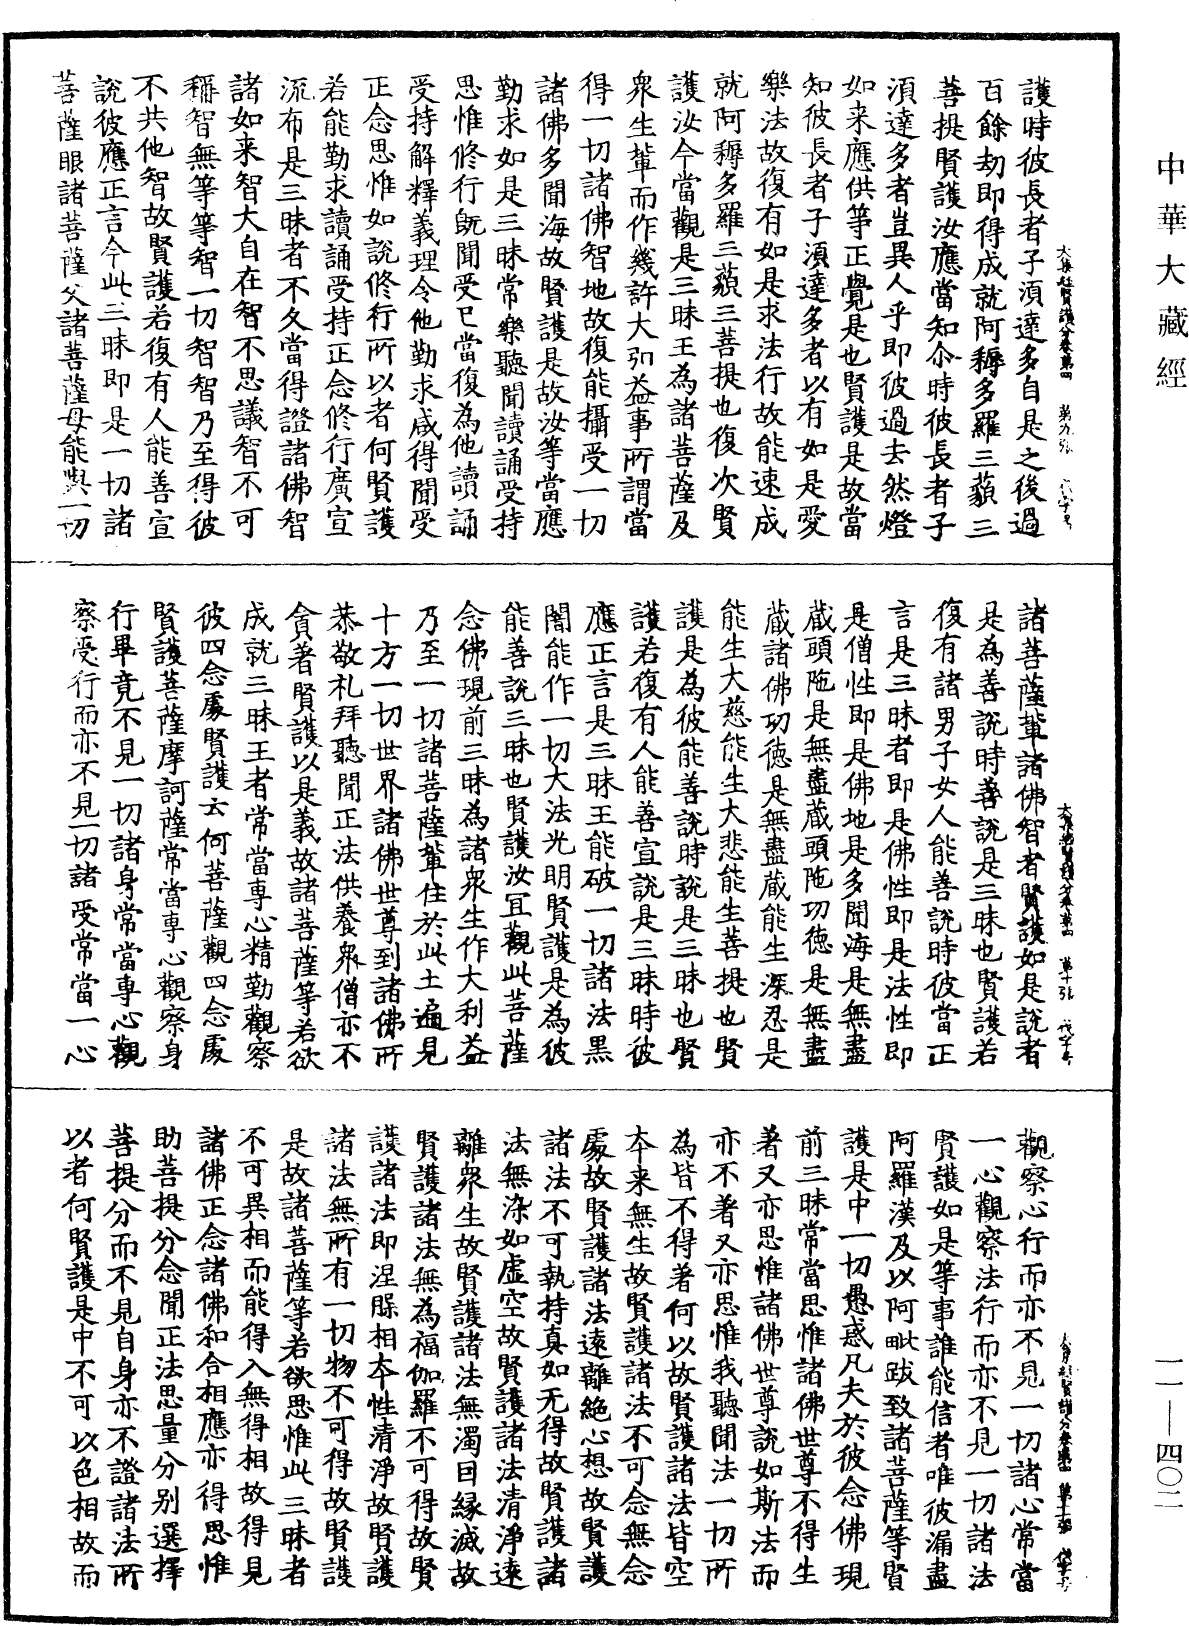 中華大藏經
護時彼長者子須達多自是之後過
百餘劫即得成就阿耨多羅三藐三
菩提賢護汝應當知尒時彼長者子
須達多者豈異人乎即彼過去然燈
如来應供等正覺是也賢護是故當
知彼長者子須達多者以有如是愛
樂法故復有如是求法行故能速成
就阿耨多羅三藐三菩提也復次賢
護汝今當觀是三昧王為諸菩薩及
衆生輩而作幾許大弘益事所謂當
得一切諸佛智地故復能攝受一切
諸佛多聞海故賢護是故汝等當應
勤求如是三昧常樂聽聞讀誦受持
思惟修行既聞受已當復為他讀誦
受持解釋義理令他勤求咸得聞受
正念思惟如說修行所以者何賢護
若能勤求讀誦受持正念修行廣宣
流布是三昧者不久當得證諸佛智
諸如来智大自在智不思議智不可
稱智無等等智一切智智乃至得彼
不共他智故賢護若復有人能善宣
說彼應正言今此三昧即是一切諸
菩薩眼諸菩薩父諸菩薩母能與一切
諸菩薩輩諸佛智者賢護如是說者
是為善說時善說是三昧也賢護若
復有諸男子女人能善說時彼當正
言是三昧者即是佛性即是法性即
是僧性即是佛地是多聞海是無盡
蔵頭陁是無盡蔵頭陁功徳是無盡
蔵諸佛功徳是無盡蔵能生深忍是
能生大慈能生大悲能生菩提也賢
護是為彼能善說時說是三昧也賢
護若復有人能善宣說是三昧時彼
應正言是三昧王能破一切諸法黑
闇能作一切大法光明賢護是為彼
能善說三昧也賢護汝宜觀此菩薩
念佛現前三昧為諸衆生作大利益
乃至一切諸菩薩輩住於此土遍見
十方一切世界諸佛世尊到諸佛所
恭敬礼拜聽聞正法供養衆僧亦不
貪著賢護以是義故諸菩薩等若欲
成就三昧王者常當專心精勤觀察
彼四念處賢護云何菩薩觀四念處
賢護菩薩摩訶薩常當專心觀察身
行畢竟不見一切諸身常當專心觀
察受行而亦不見一切諸受常當一心
觀察心行而亦不見一切諸心常當
一心觀察法行而亦不見一切諸法
賢護如是等事誰能信者唯彼漏盡
阿羅漢及以阿毗跋致諸菩薩等賢
護是中一切愚惑凡夫於彼念佛現
前三昧常當思惟諸佛世尊不得生
著又亦思惟諸佛世尊說如斯法而
亦不著又亦思惟我聽聞法一切所
為皆不得著何以故賢護諸法皆空
本来無生故賢護諸法不可念無念
處故賢護諸法遠離絶心想故賢護
諸法不可執持真如无得故賢護諸
法無染如虛空故賢護諸法清淨遠
離衆生故賢護諸法無濁因縁滅故
賢護諸法無為福伽羅不可得故賢
護諸法即涅脲相本性清淨故賢護
諸法無所有一切物不可得故賢護
是故諸菩薩等若欲思惟此三昧者
不可異相而能得入無得相故得見
諸佛正念諸佛和合相應亦得思惟
助菩提分念聞正法思量分别選擇
菩提分而不見自身亦不證諸法所
以者何賢護是中不可以色相故而
一一—四〇二